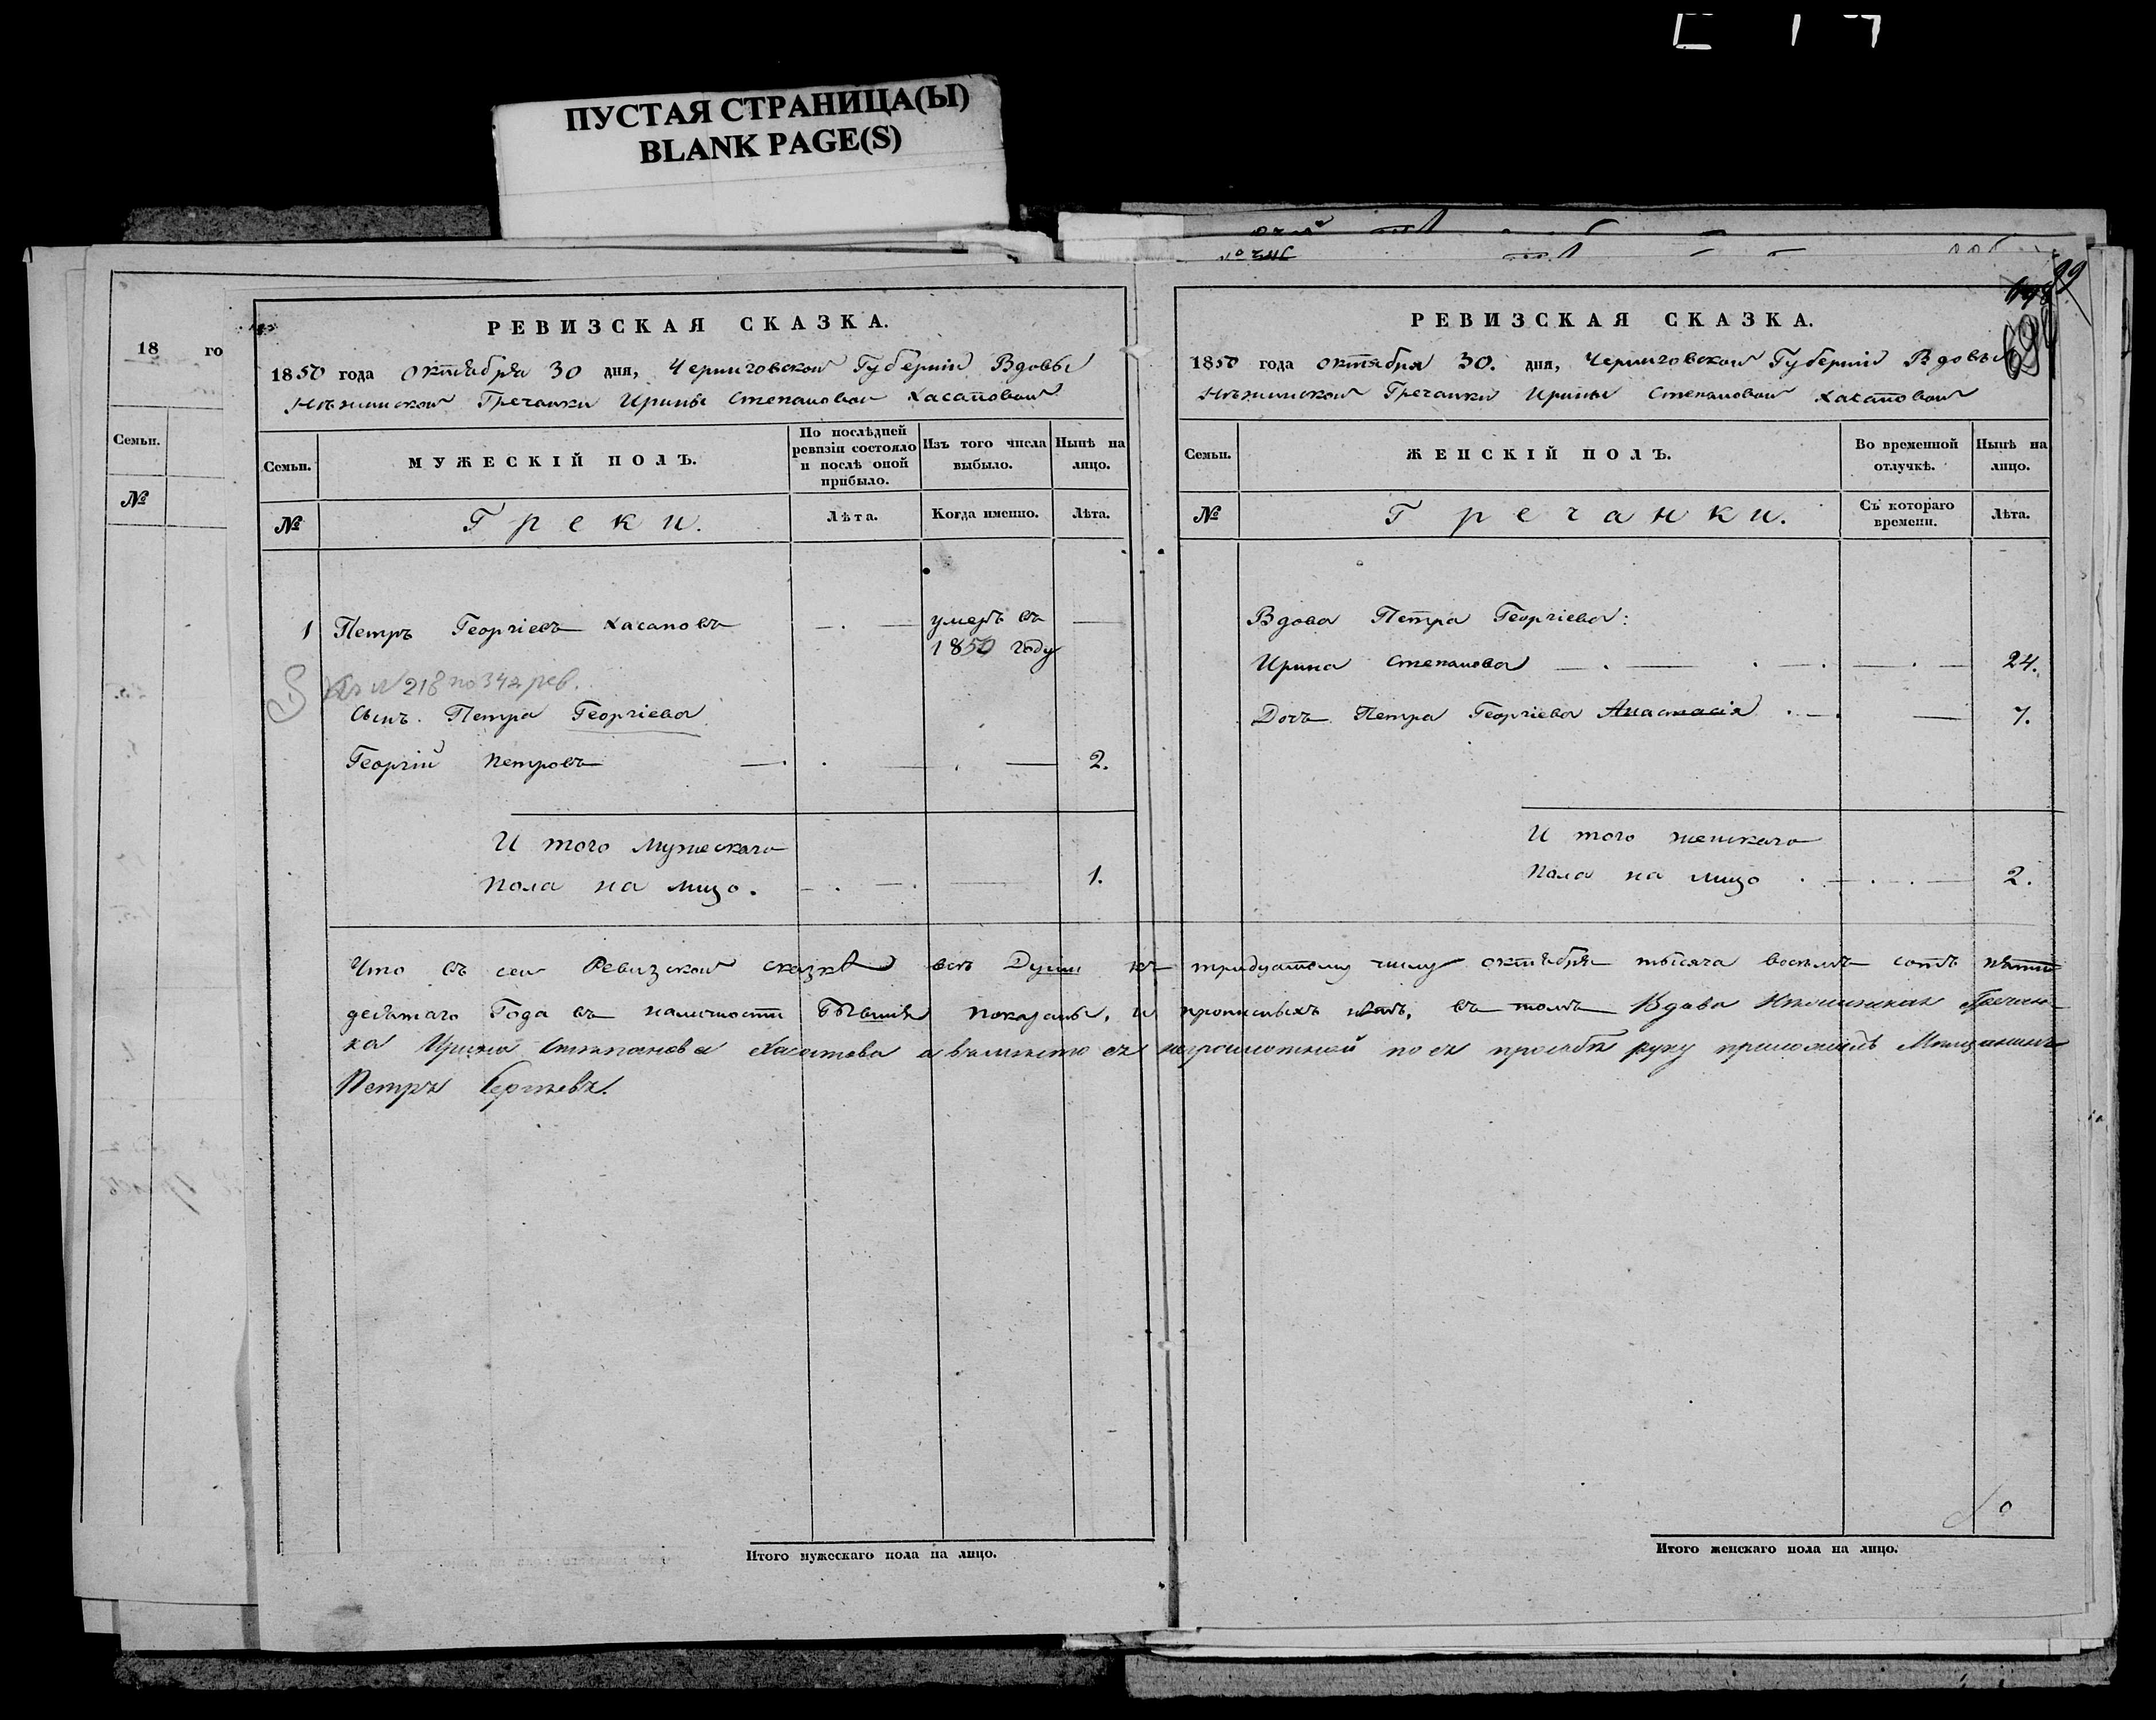 ПУСТАЯ СТРАНИЦА(Ы)
BLANK PAGE(S)
18 го
Семьи.
№
РЕВИЗСКАЯ СКАЗКА.
1850 года октября 30 дня, Черниговской Губерніи Вдовы
Нѣжинской Гречанки Ирины Степановой Хасаповой
Семьи.
МУЖЕСКІЙ ПОЛЪ.
По послѣдней ревизіи состояло и послѣ оной прибыло.
Изъ того числа выбыло.
Нынѣ на лицо.
№
Греки.
Лѣта.
Когда именно.
Лѣта.
1 Петръ Георгіевъ Хасаповъ умеръ въ
1850 году
№ 218 по 342 рев.
Сынъ Петра Георгіева
Георгій Петровъ 2.
И того Мужескаго
пола на лицо. 1.
Итого мужескаго пола на лицо.
РЕВИЗСКАЯ СКАЗКА.
1850 года октября 30. дня, Черниговской Губерніи Вдовы
Нѣжинской Гречанки Ирины Степановой Хасаповой
Семьи.
ЖЕНСКІЙ ПОЛЪ.
Во временной отлучкѣ.
Нынѣ на лицо.
№
Гречанки.
Съ котораго времени.
Лѣта.
Вдова Петра Георгіева:
Ирина Степанова 24.
Дочь Петра Георгіева Анастасія 7.
И того женскаго
пола на лицо 2.
Что въ сей Ревизской сказкѣ всѣ Души къ тридцатому числу октября тысяча восемь сотъ пяти
десятаго Года въ наличности Бывшія показаны, и прописныхъ нѣтъ, въ томъ Вдова Нѣжинская Гречан
ка Ирина Степанова Хасапова а вмѣсто ея неграмотной по ея прозьбѣ руку приложилъ Мещанинъ
Петръ Сергѣевъ.
Итого женскаго пола на лицо.